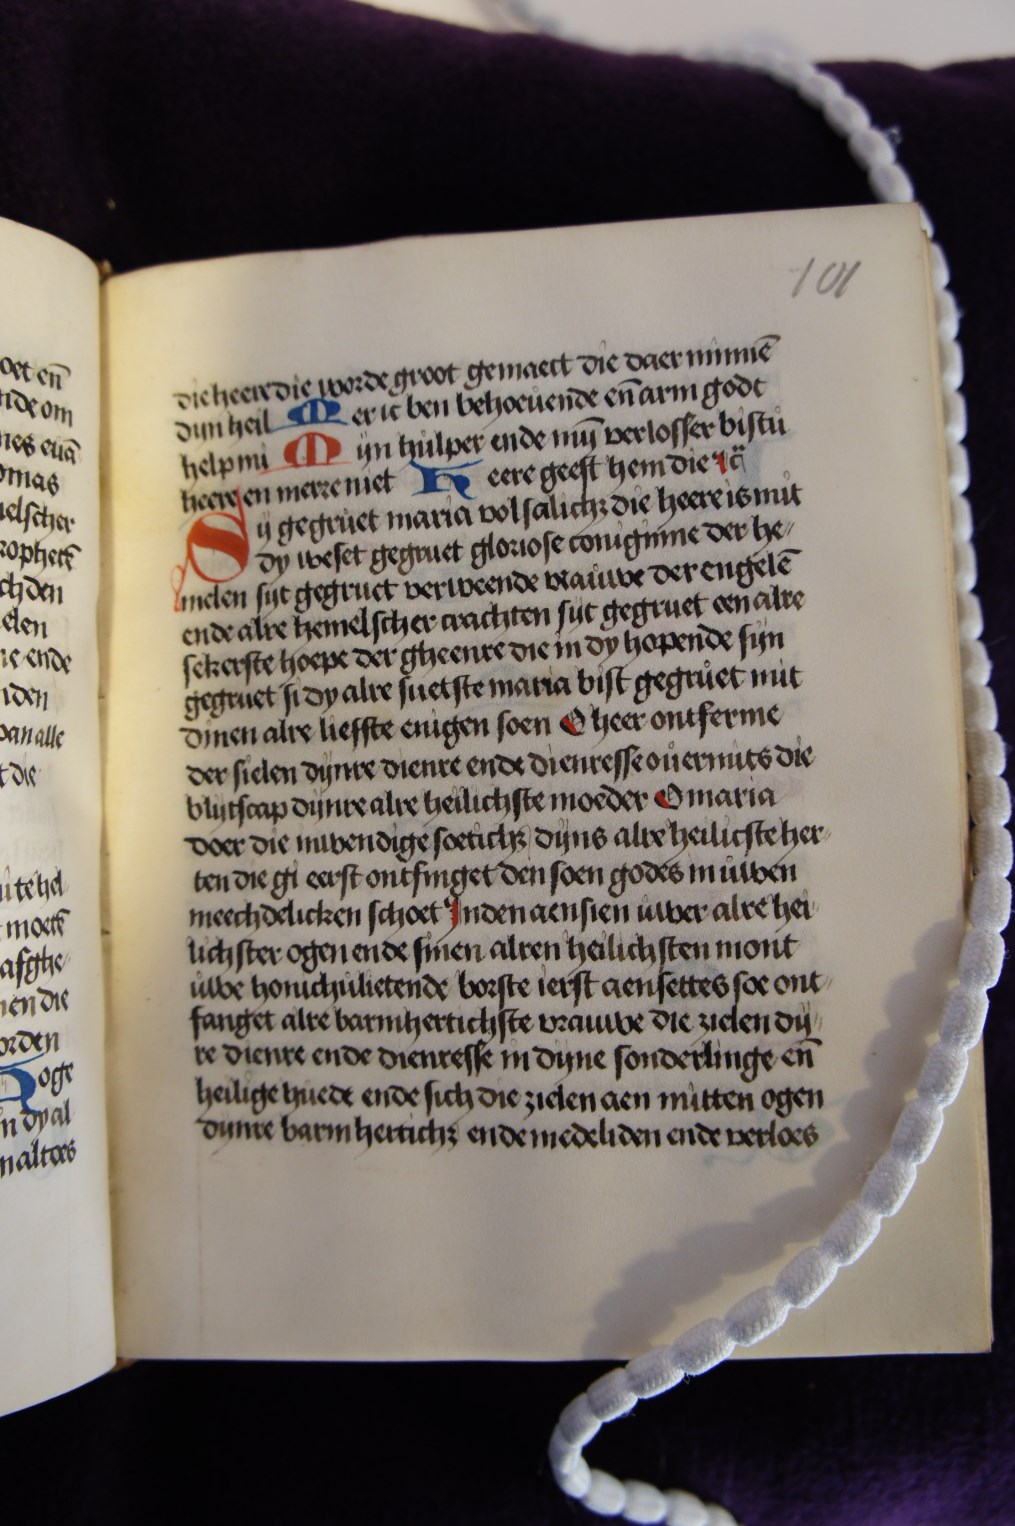 oet en̄
nde om
nes euā
omas
elscher
rophetē
ch den
elen
ne ende
nden
van alle
t die
n te hel
moetē
afghe
nen die
orden
Hoge
n dy al
n altoes
101
die heere die worde groot gemaect die daer minnē
dyn heil Mer ic ben behoeuende en̄ arm godt
help mi Mijn hulper ende mȳ verlosser bistu
heere en merre niet Heere geest hem die
Sy gegruet maria vol salichz die heere is mit
dy weset gegruet gloriose coniginne der he
melen syt gegruet verweende vrauwe der engelē
ende alre hemelscher crachten syt gegruet een alre
sekerste hoepe der gheenre die in dy hopende sijn
gegruet si dy alre suetste maria bist gegruet mit
dinen alre lieffte enigen soen O heer ontferme
der sielen dijnre dienre ende dienresse ouermits die
blijtscap dijnre alre heilichste moeder O maria
doer die inwendige soetichz dijns alre heilicste her
ten die gi eerst ontfinget den soen godes in uwen
meechdelicken schoet In den aensien uwer alre hei
lichster ogen ende sinen alren heilichsten mont
uwe honichulietende borste ierst aensettes soe ont
fanget alre barmhertichste vrauwe die zielen dij
re dienre ende dienresse in dijne sonderlinge en̄
heilige huede ende sich die zielen aen mitten ogen
dijnre barmhertichz ende medeliden ende verloes